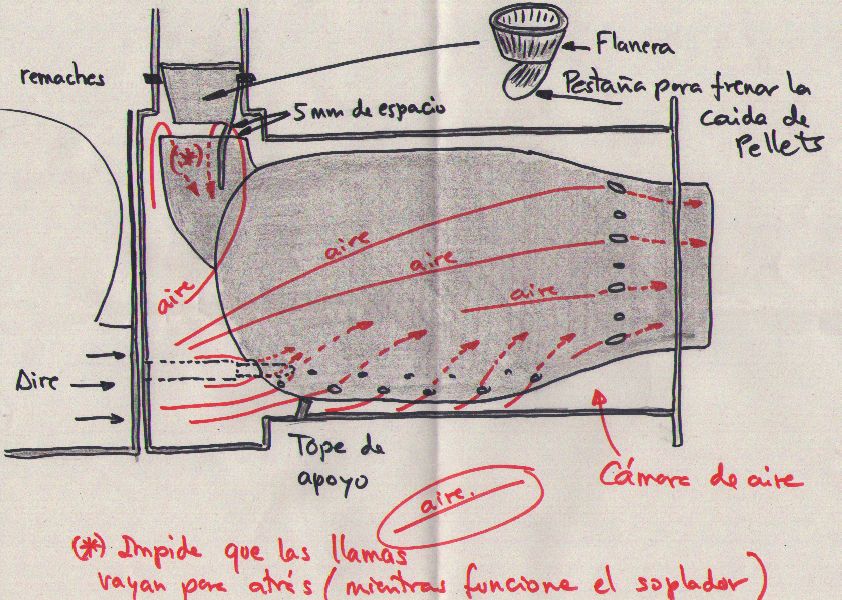 remaches
Flanera
Pestaña para frenar la
caida de
Pellets
5 mm de espacio
(*)
aire
aire
aire
aire
Aire
Tope de
apoyo
Cámara de aire
aire.
(*) Impide que las llamas
vayan para atrás (mientras funcione el soplador)